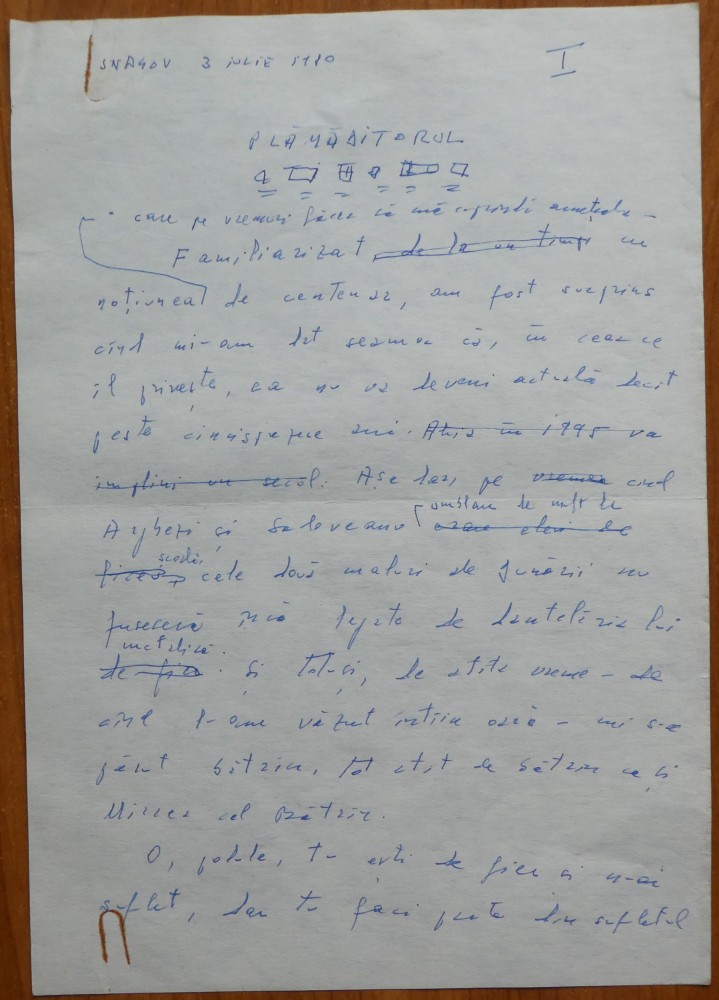 SNAGOV 3 IULIE 1980
I
PLĂMĂDITORUL
care pe vremuri făcea să mă cuprindă amețeala
Familiarizat, de la un timp cu
noțiunea de centenar, am fost surprins
cînd mi-am dat seama că, în ceea ce
îl privește, ea nu va deveni actuală decît
peste cincisprezece ani. Abia în 1995 va
împlini un secol. Așadar, pe vremea cînd
umblau de mult la
Arghezi și Sadoveanu erau elevi de
școală
cele două maluri ale Dunării nu
fuseseră încă legate de dantelăria lui
metalică.
de fier. Și totuși, de atîta vreme – de
cînd l-am văzut întîia oară – mi s-a
părut bătrîn, tot atît de bătrîn ca și
Mircea cel Bătrîn.
O, podule, tu ești de fier și n-ai
suflet, dar tu faci parte din sufletul